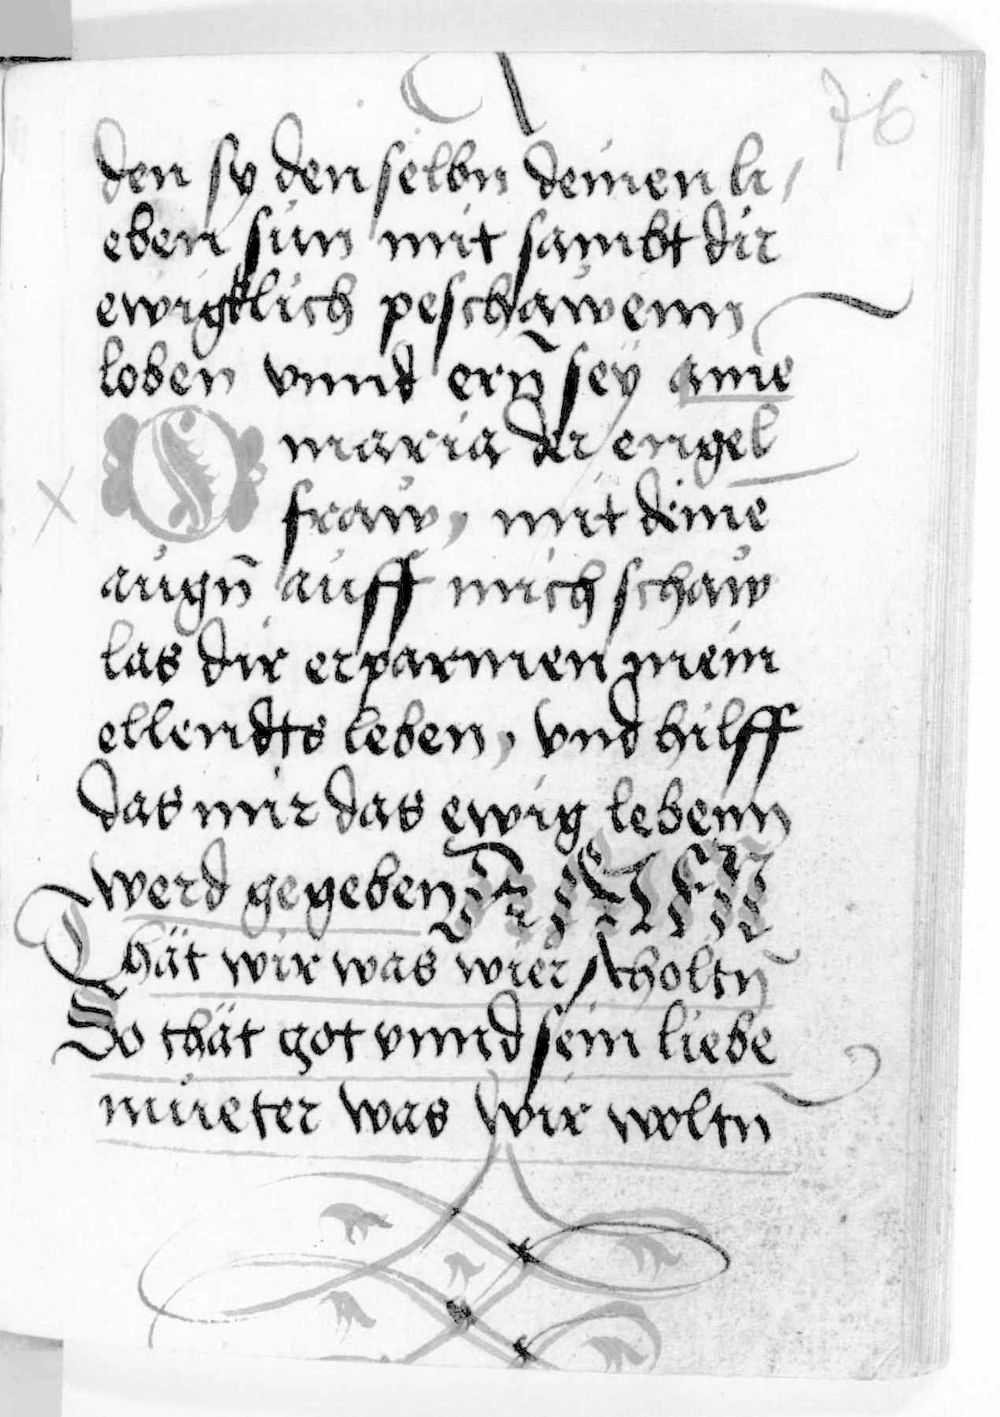 76
den sy den selbn deinen li/
eben sun mit sambt dir
ewigklich peschawenn
loben vnnd ern̄ sey ame
O maria der engel
fraw, mit deine
augn̄ auff mich schaw
las dir erparmen mein
ellendts leben, vnd hilff
das mir das ewig lebenn
werd gegeben AMEN
Thät wir was wier scholtn̄
So thät got vnnd sein liebe
mueter was wir woltn̄